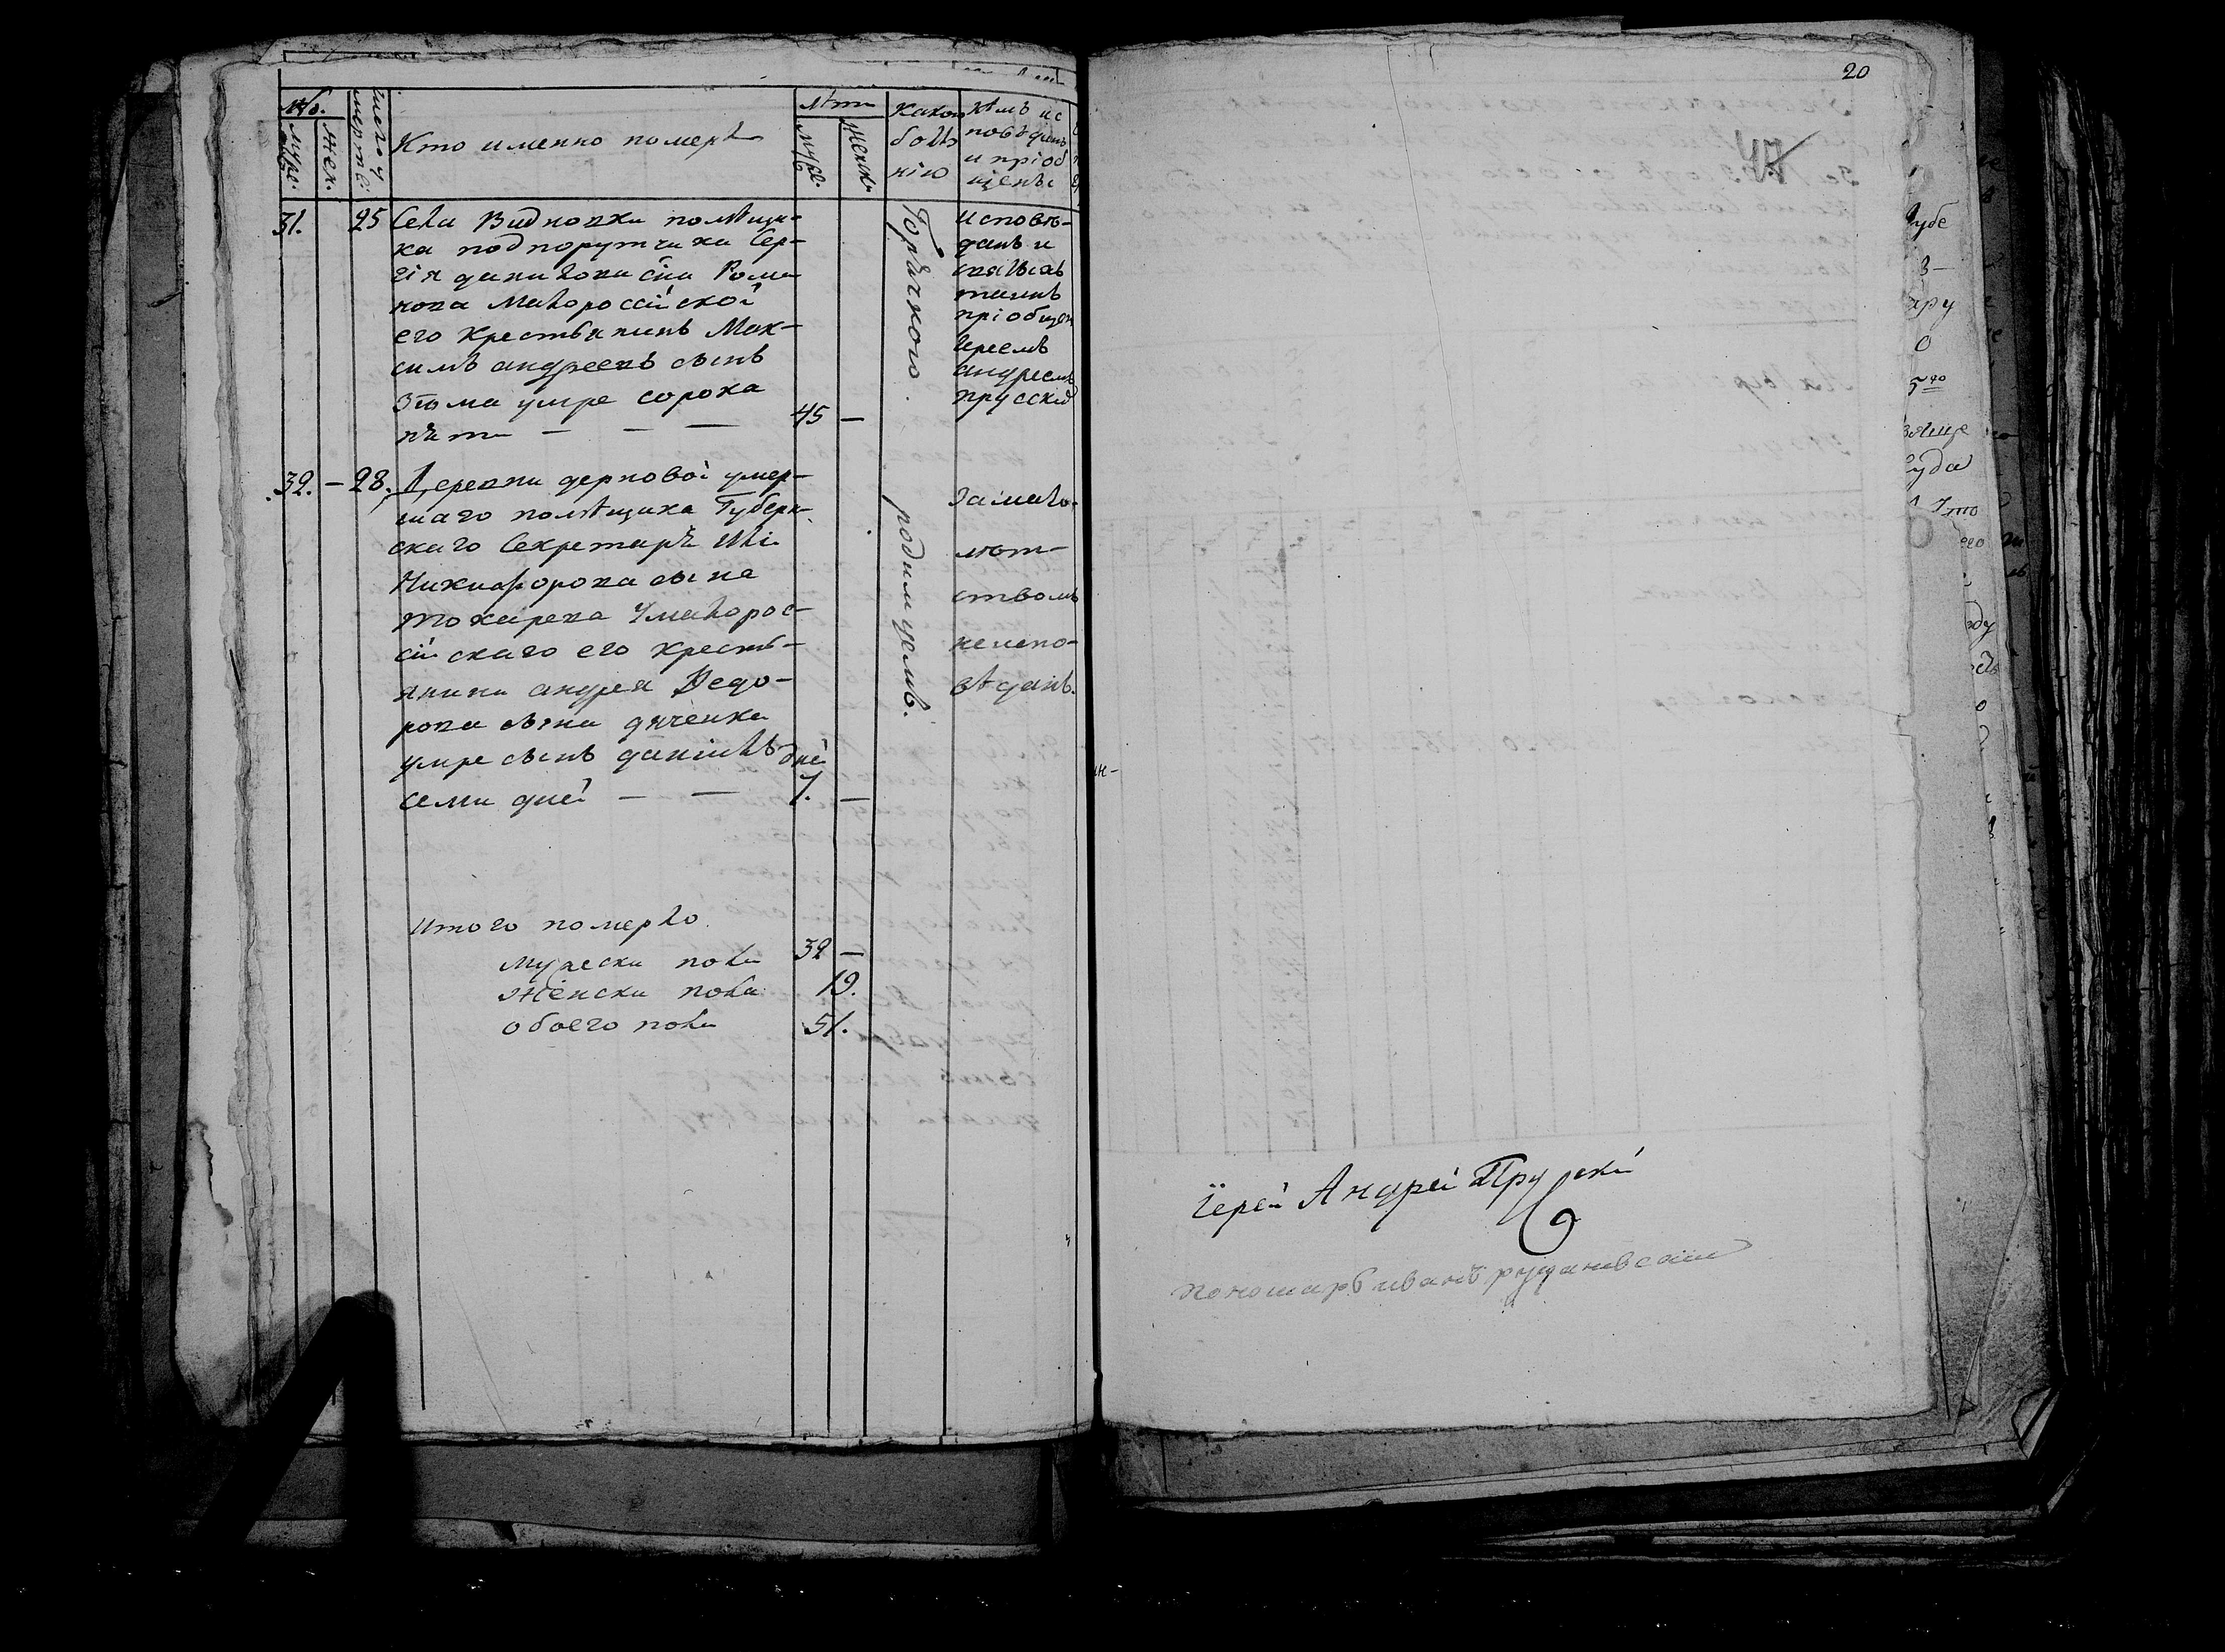 №.
муже.
жен.
число умертв:
Кто именно померъ
лѣта
муже.
женск.
какою болѣзнію
кѣмъ исповѣданъ и пріобщенъ
31. 25 Села Видновки помѣщи-
ка подпорутчика Сер-
гія данилова сна Рома
нова Малороссійской
его крестьянинъ Мак-
симъ андреевъ сынъ
умре сорока
пѣти — — — 45 —
Горячкою.
исповѣ-
данъ и
таинъ
пріобщен
Іереемъ
андреемъ
прусским
32. — 28. Деревни дерновой умер-
шаго помѣщика Губерн-
скаго Секретаря
Никифорова сына
токарева Умалорос-
сійскаго его кресть-
янина андрея Ѳедо-
рова сына дяченка
умре сынъ даніилъ
семи дней — — дней 7. —
родимцемъ.
замало-
лѣт-
ствомъ
неиспо-
вѣданъ.
Итого померло.
мужеска пола 32 —
женска пола 19.
обоего пола 51.
20
47
Іерей Андрей Прускій
пономарь иванъ